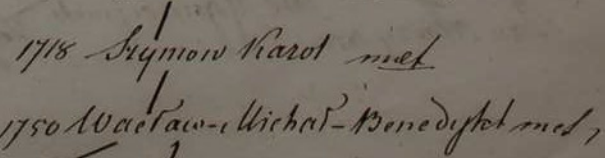 1718 Szymon Karol met
1750 Wacław-Michał-Benedykt met,